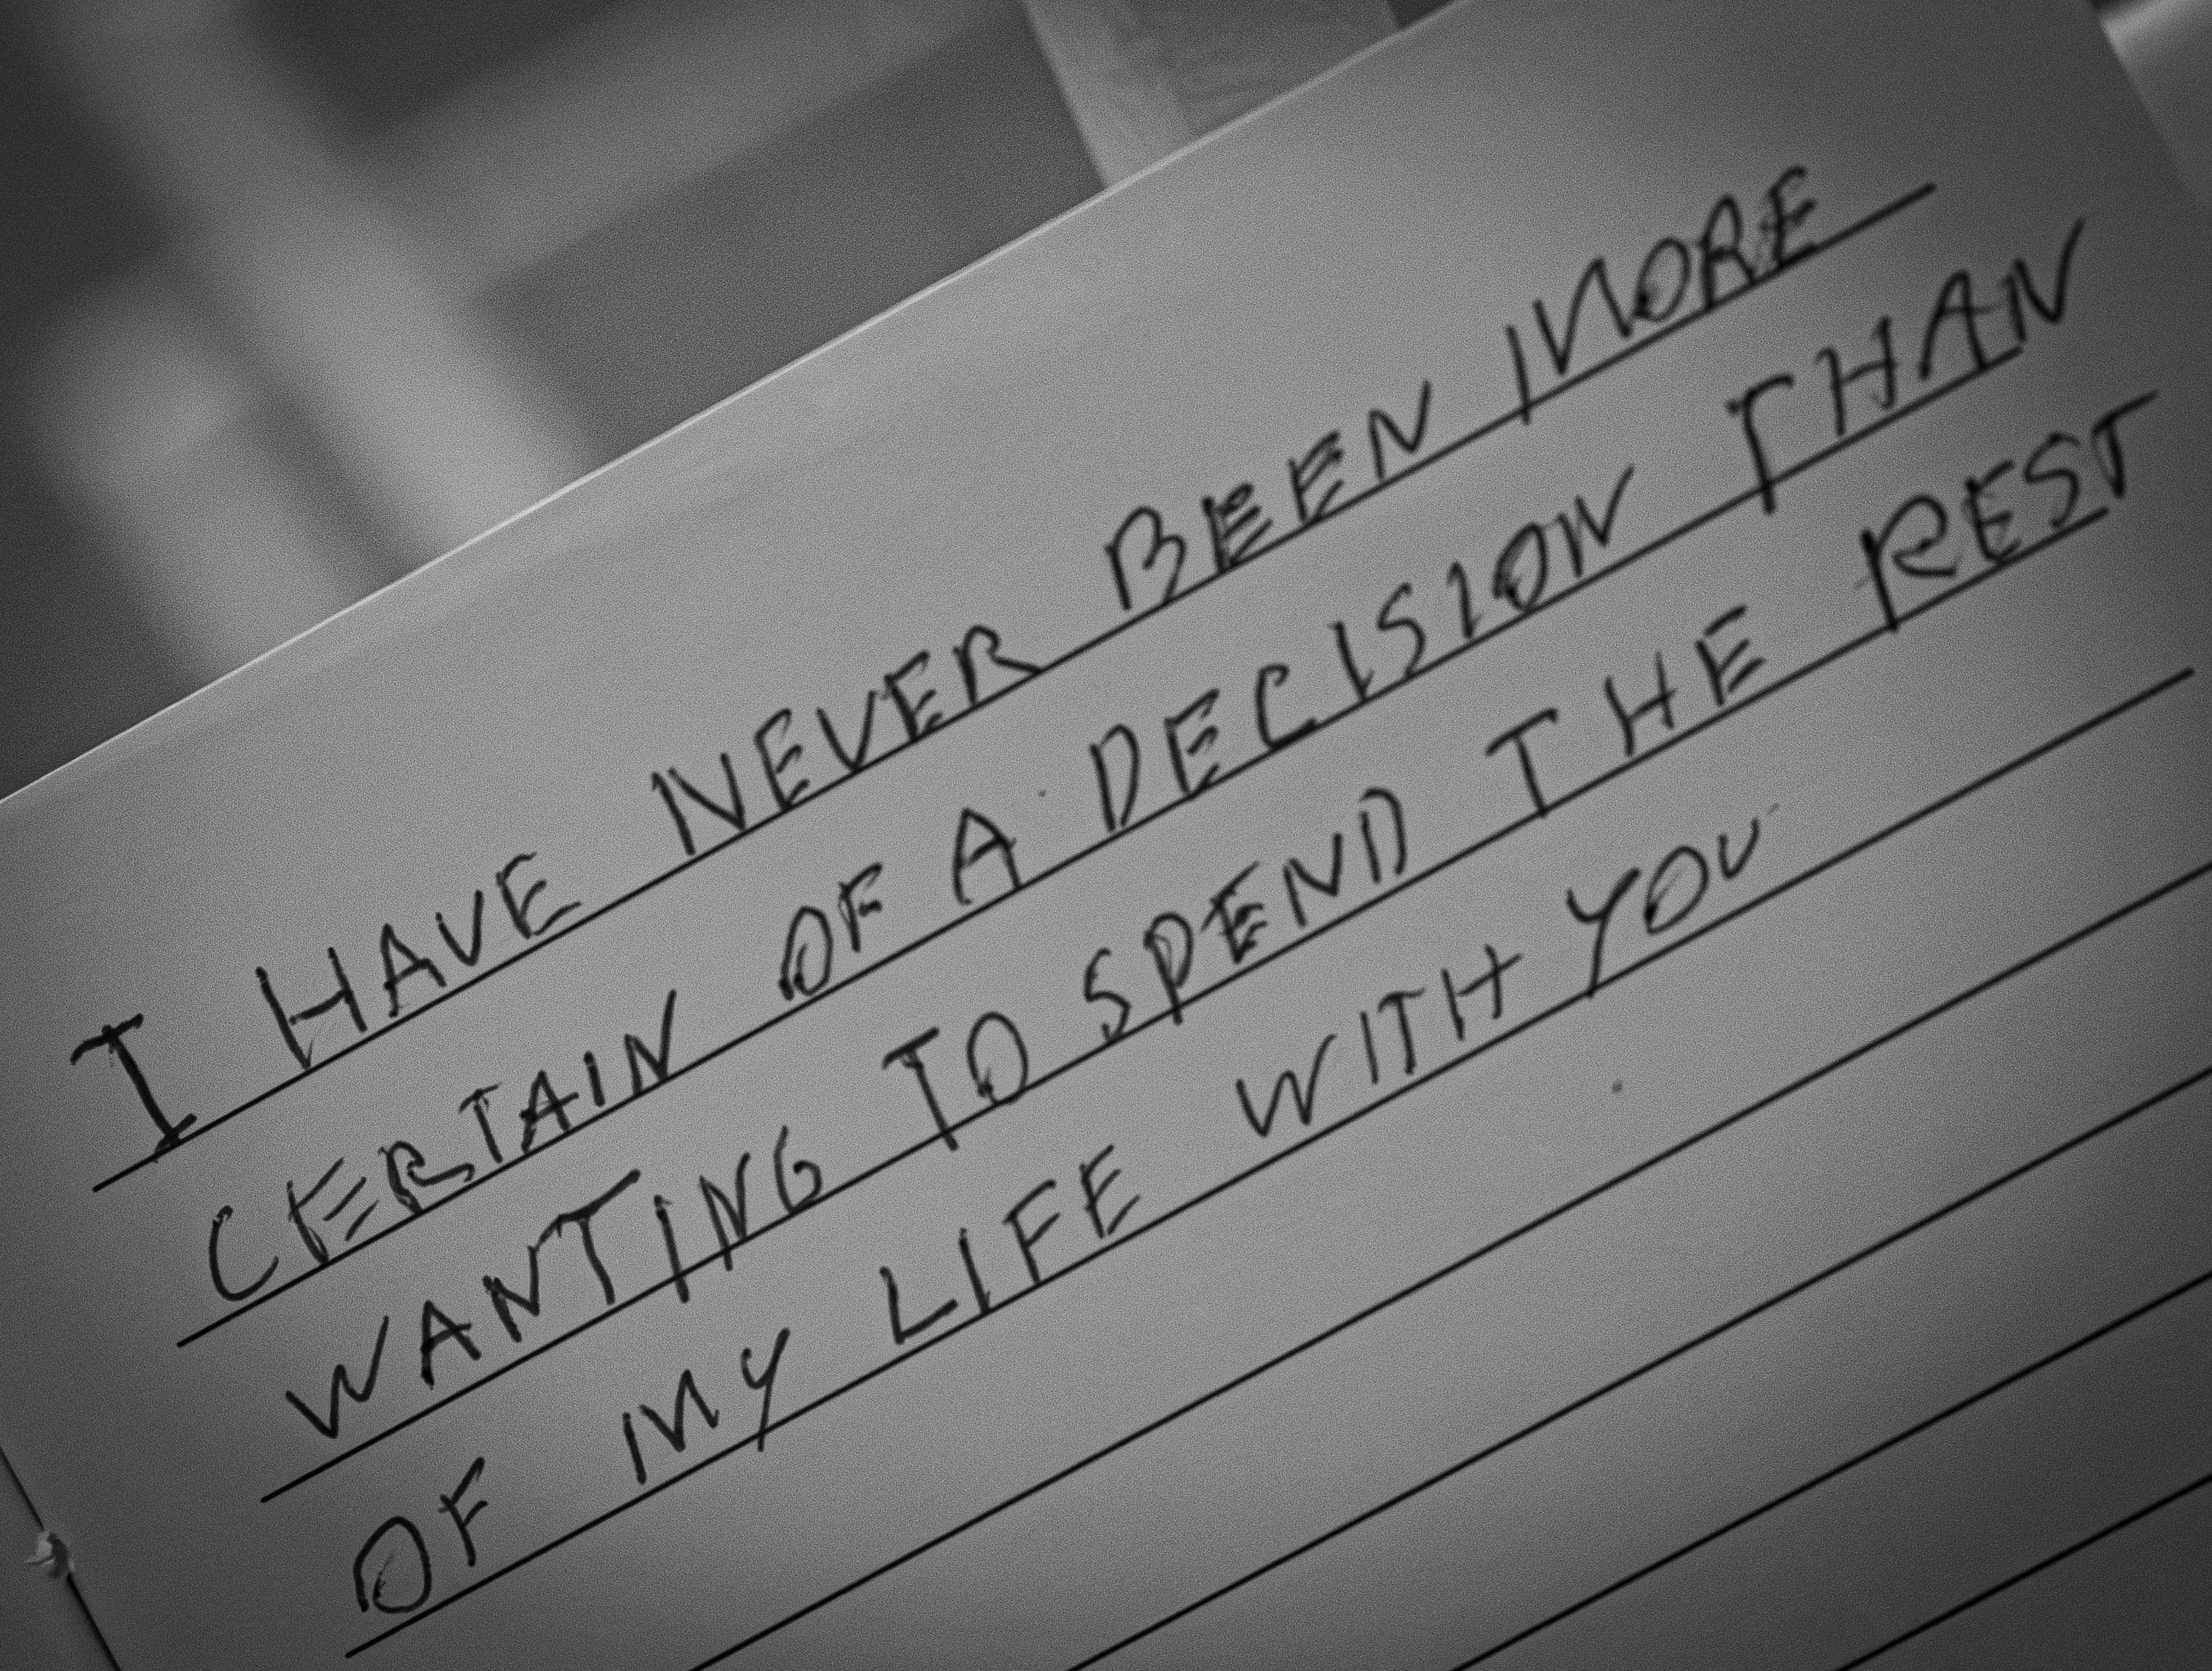 I HAVE NEVER BEEN MORE
CERTAIN OF A DECISION THAN
WANTING TO SPEND THE REST
OF MY LIFE WITH YOU